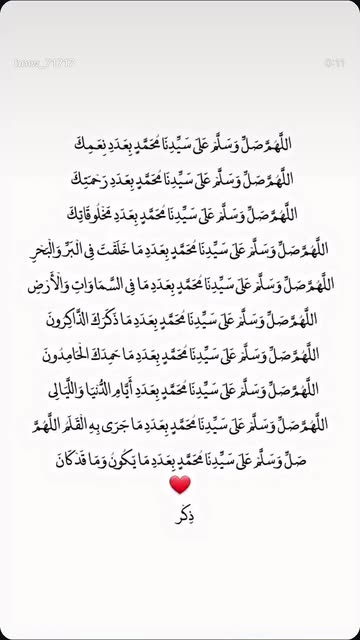 0:11
اللَّهُمَّ صَلِّ وَسَلِّمْ عَلَى سَيِّدِنَا مُحَمَّدٍ بِعَدَدِ نِعَمِكَ
اللَّهُمَّ صَلِّ وَسَلِّمْ عَلَى سَيِّدِنَا مُحَمَّدٍ بِعَدَدِ رَحْمَتِكَ
اللَّهُمَّ صَلِّ وَسَلِّمْ عَلَى سَيِّدِنَا مُحَمَّدٍ بِعَدَدِ مَخْلُوقَاتِكَ
اللَّهُمَّ صَلِّ وَسَلِّمْ عَلَى سَيِّدِنَا مُحَمَّدٍ بِعَدَدِ مَا خَلَقْتَ فِي الْبَرِّ وَالْبَحْرِ
اللَّهُمَّ صَلِّ وَسَلِّمْ عَلَى سَيِّدِنَا مُحَمَّدٍ بِعَدَدِ مَا فِي السَّمَاوَاتِ وَالْأَرْضِ
اللَّهُمَّ صَلِّ وَسَلِّمْ عَلَى سَيِّدِنَا مُحَمَّدٍ بِعَدَدِ مَا ذَكَرَكَ الذَّاكِرُونَ
اللَّهُمَّ صَلِّ وَسَلِّمْ عَلَى سَيِّدِنَا مُحَمَّدٍ بِعَدَدِ مَا حَمِدَكَ الْحَامِدُونَ
اللَّهُمَّ صَلِّ وَسَلِّمْ عَلَى سَيِّدِنَا مُحَمَّدٍ بِعَدَدِ أَيَّامِ الدُّنْيَا وَاللَّيَالِي
اللَّهُمَّ صَلِّ وَسَلِّمْ عَلَى سَيِّدِنَا مُحَمَّدٍ بِعَدَدِ مَا جَرَى بِهِ الْقَلَمُ اللَّهُمَّ
صَلِّ وَسَلِّمْ عَلَى سَيِّدِنَا مُحَمَّدٍ بِعَدَدِ مَا يَكُونُ وَمَا قَدْ كَانَ
ذِكْر